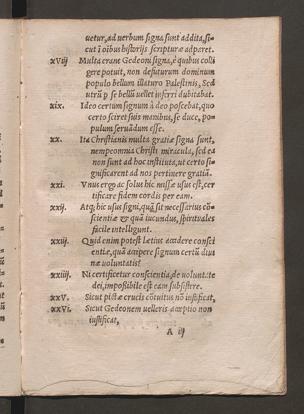 uetur, ad uerbum signa sunt addita, si-
cut ī oībus historijs scripturæ adparet.
xviij Multa erant Gedeoni signa, e quibus colli
gere potuit, non defuturum dominum
populo bellum illaturo Palestinis, sed
utrū p se bellū uellet inferri dubitabat.
xix. Ideo certum signum à deo poscebat, quo
certo sciret suis manibus, se duce, po-
pulum seruādum esse.
xx. Ita Christianis multa gratiæ signa sunt,
nempe omnia Christi miracula, sed ea
non sunt ad hoc instituta, ut certo si-
gnificarent ad nos pertinere gratiā.
xxi. Vnus ergo ac solus hic missæ usus est, cer-
tificare fidem cordis per eam.
xxij. Atq; hic usus signi, quā sit necessarius cō-
scientiæ & quā iucundus, spirituales
facile intelligunt.
xxiij. Quid enim potest lætius accidere consci
entiæ, quā accipere signum certū diui
næ uoluntatis?
xxiiij. Ni certificetur conscientia, de uolūtate
dei, impoßibile est eam subsistere.
xxv. Sicut pictæ crucis cōtuitus nō iustificat,
xxvi. Sicut Gedeonem uelleris acceptio non
iustificat,
A iij